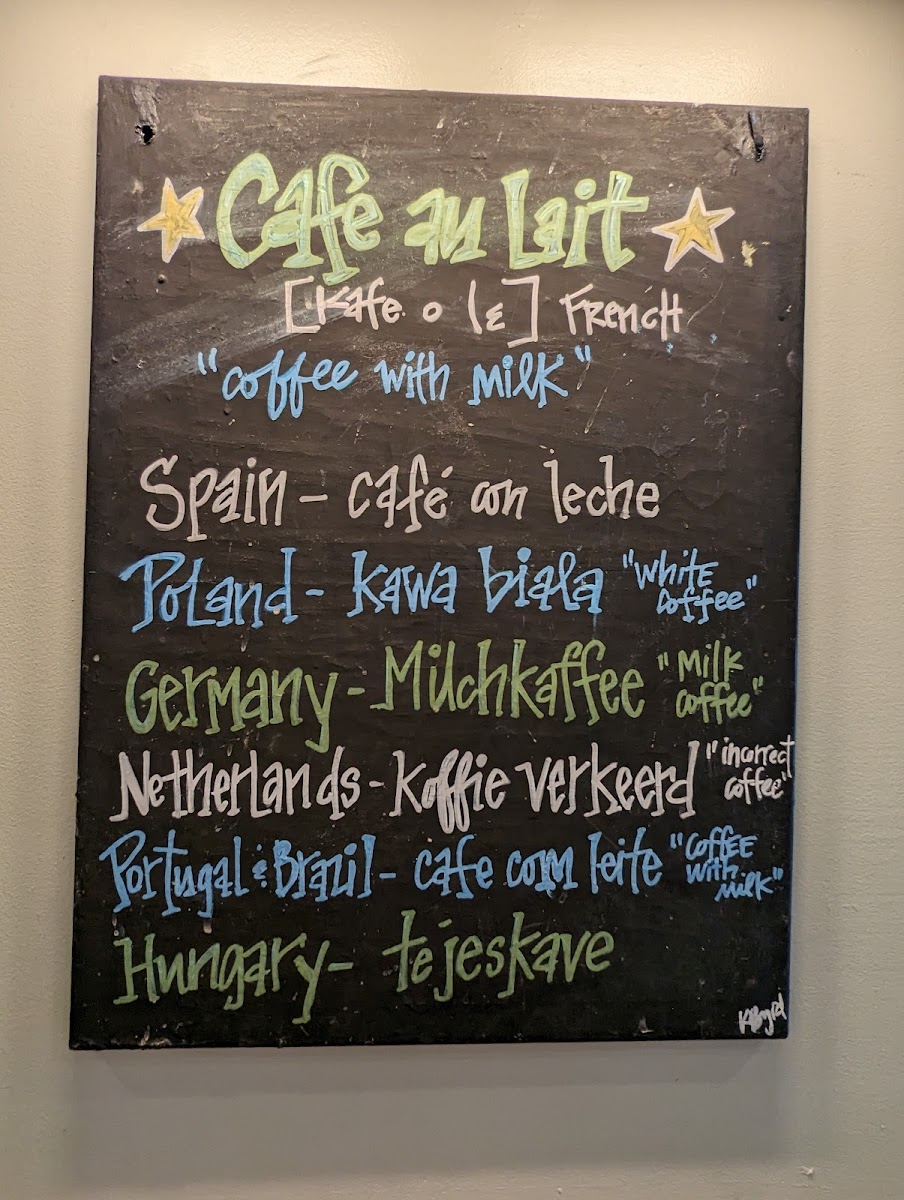 Café au Lait
[Kafe o lɛ] FRENCH
"coffee with milk"
Spain - café con leche
Poland - kawa biała "White coffee"
Germany - Milchkaffee "Milk coffee"
Netherlands - koffie verkeerd "incorrect coffee"
Portugal & Brazil - cafe com leite "Coffee with milk"
Hungary - tejeskave